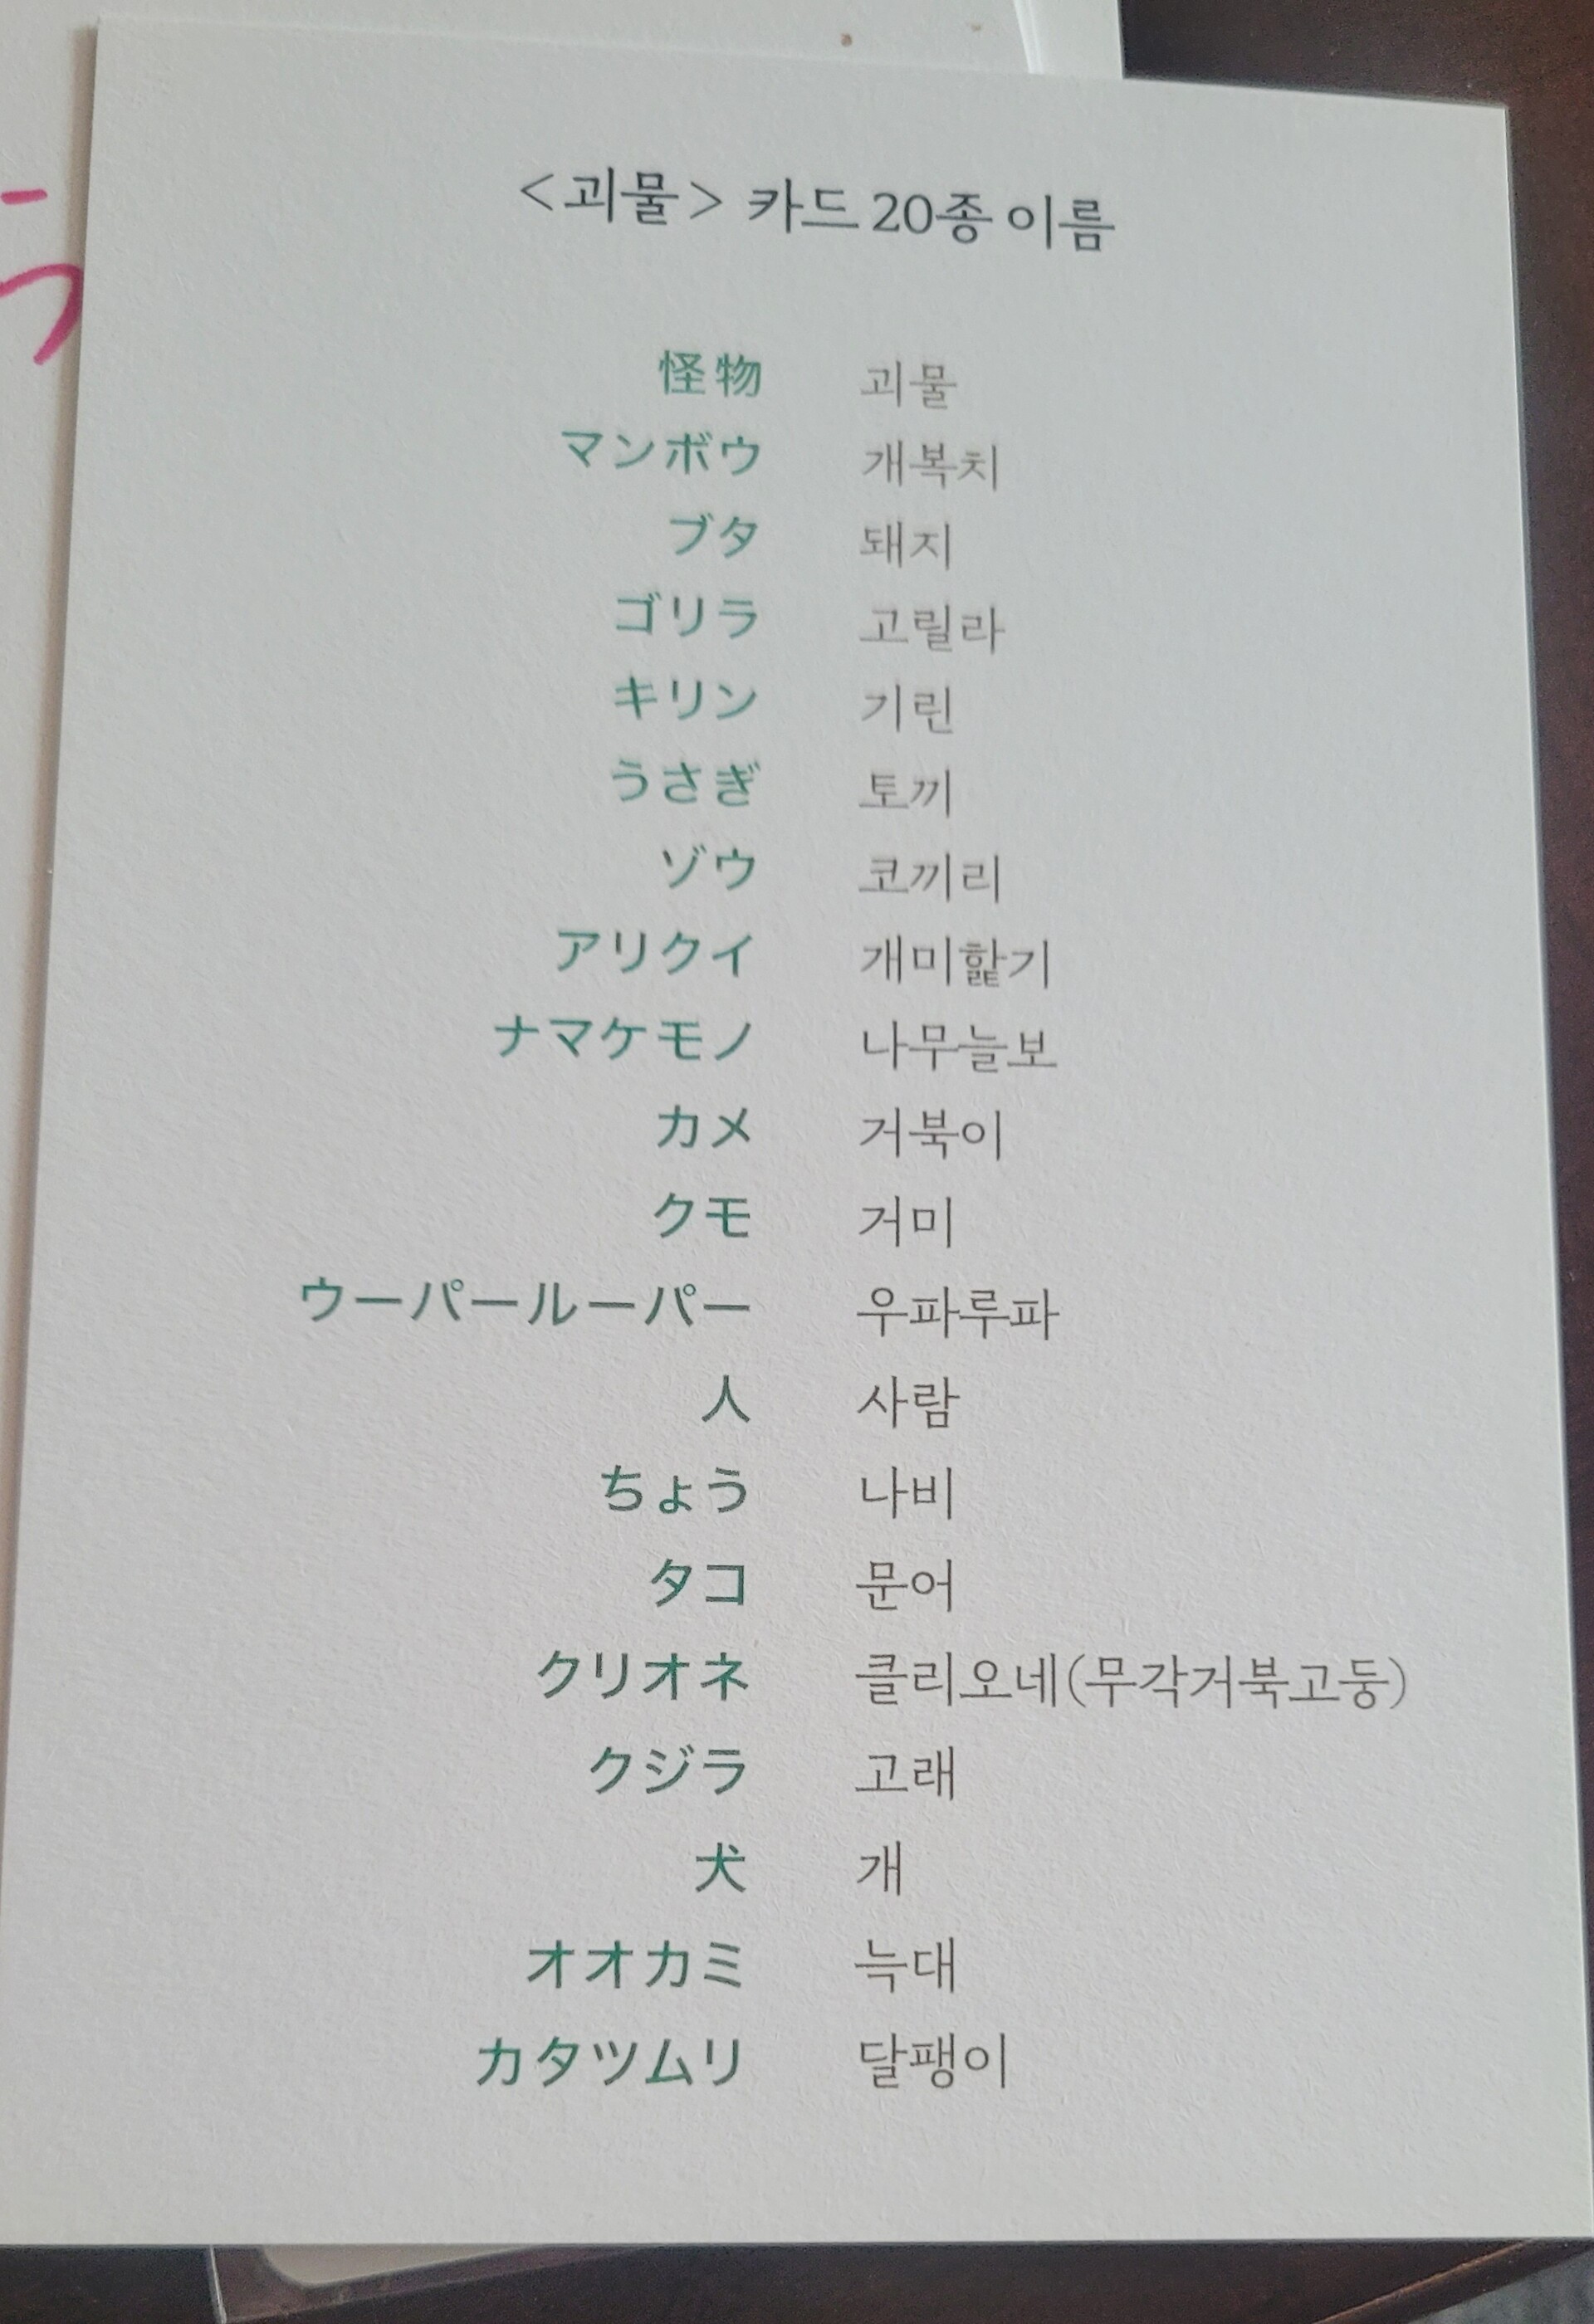 <괴물> 카드 20종 이름
怪物 괴물
マンボウ 개복치
ブタ 돼지
ゴリラ 고릴라
キリン 기린
うさぎ 토끼
ゾウ 코끼리
アリクイ 개미핥기
ナマケモノ 나무늘보
カメ 거북이
クモ 거미
ウーパールーパー 우파루파
人 사람
ちょう 나비
タコ 문어
クリオネ 클리오네(무각거북고둥)
クジラ 고래
犬 개
オオカミ 늑대
カタツムリ 달팽이